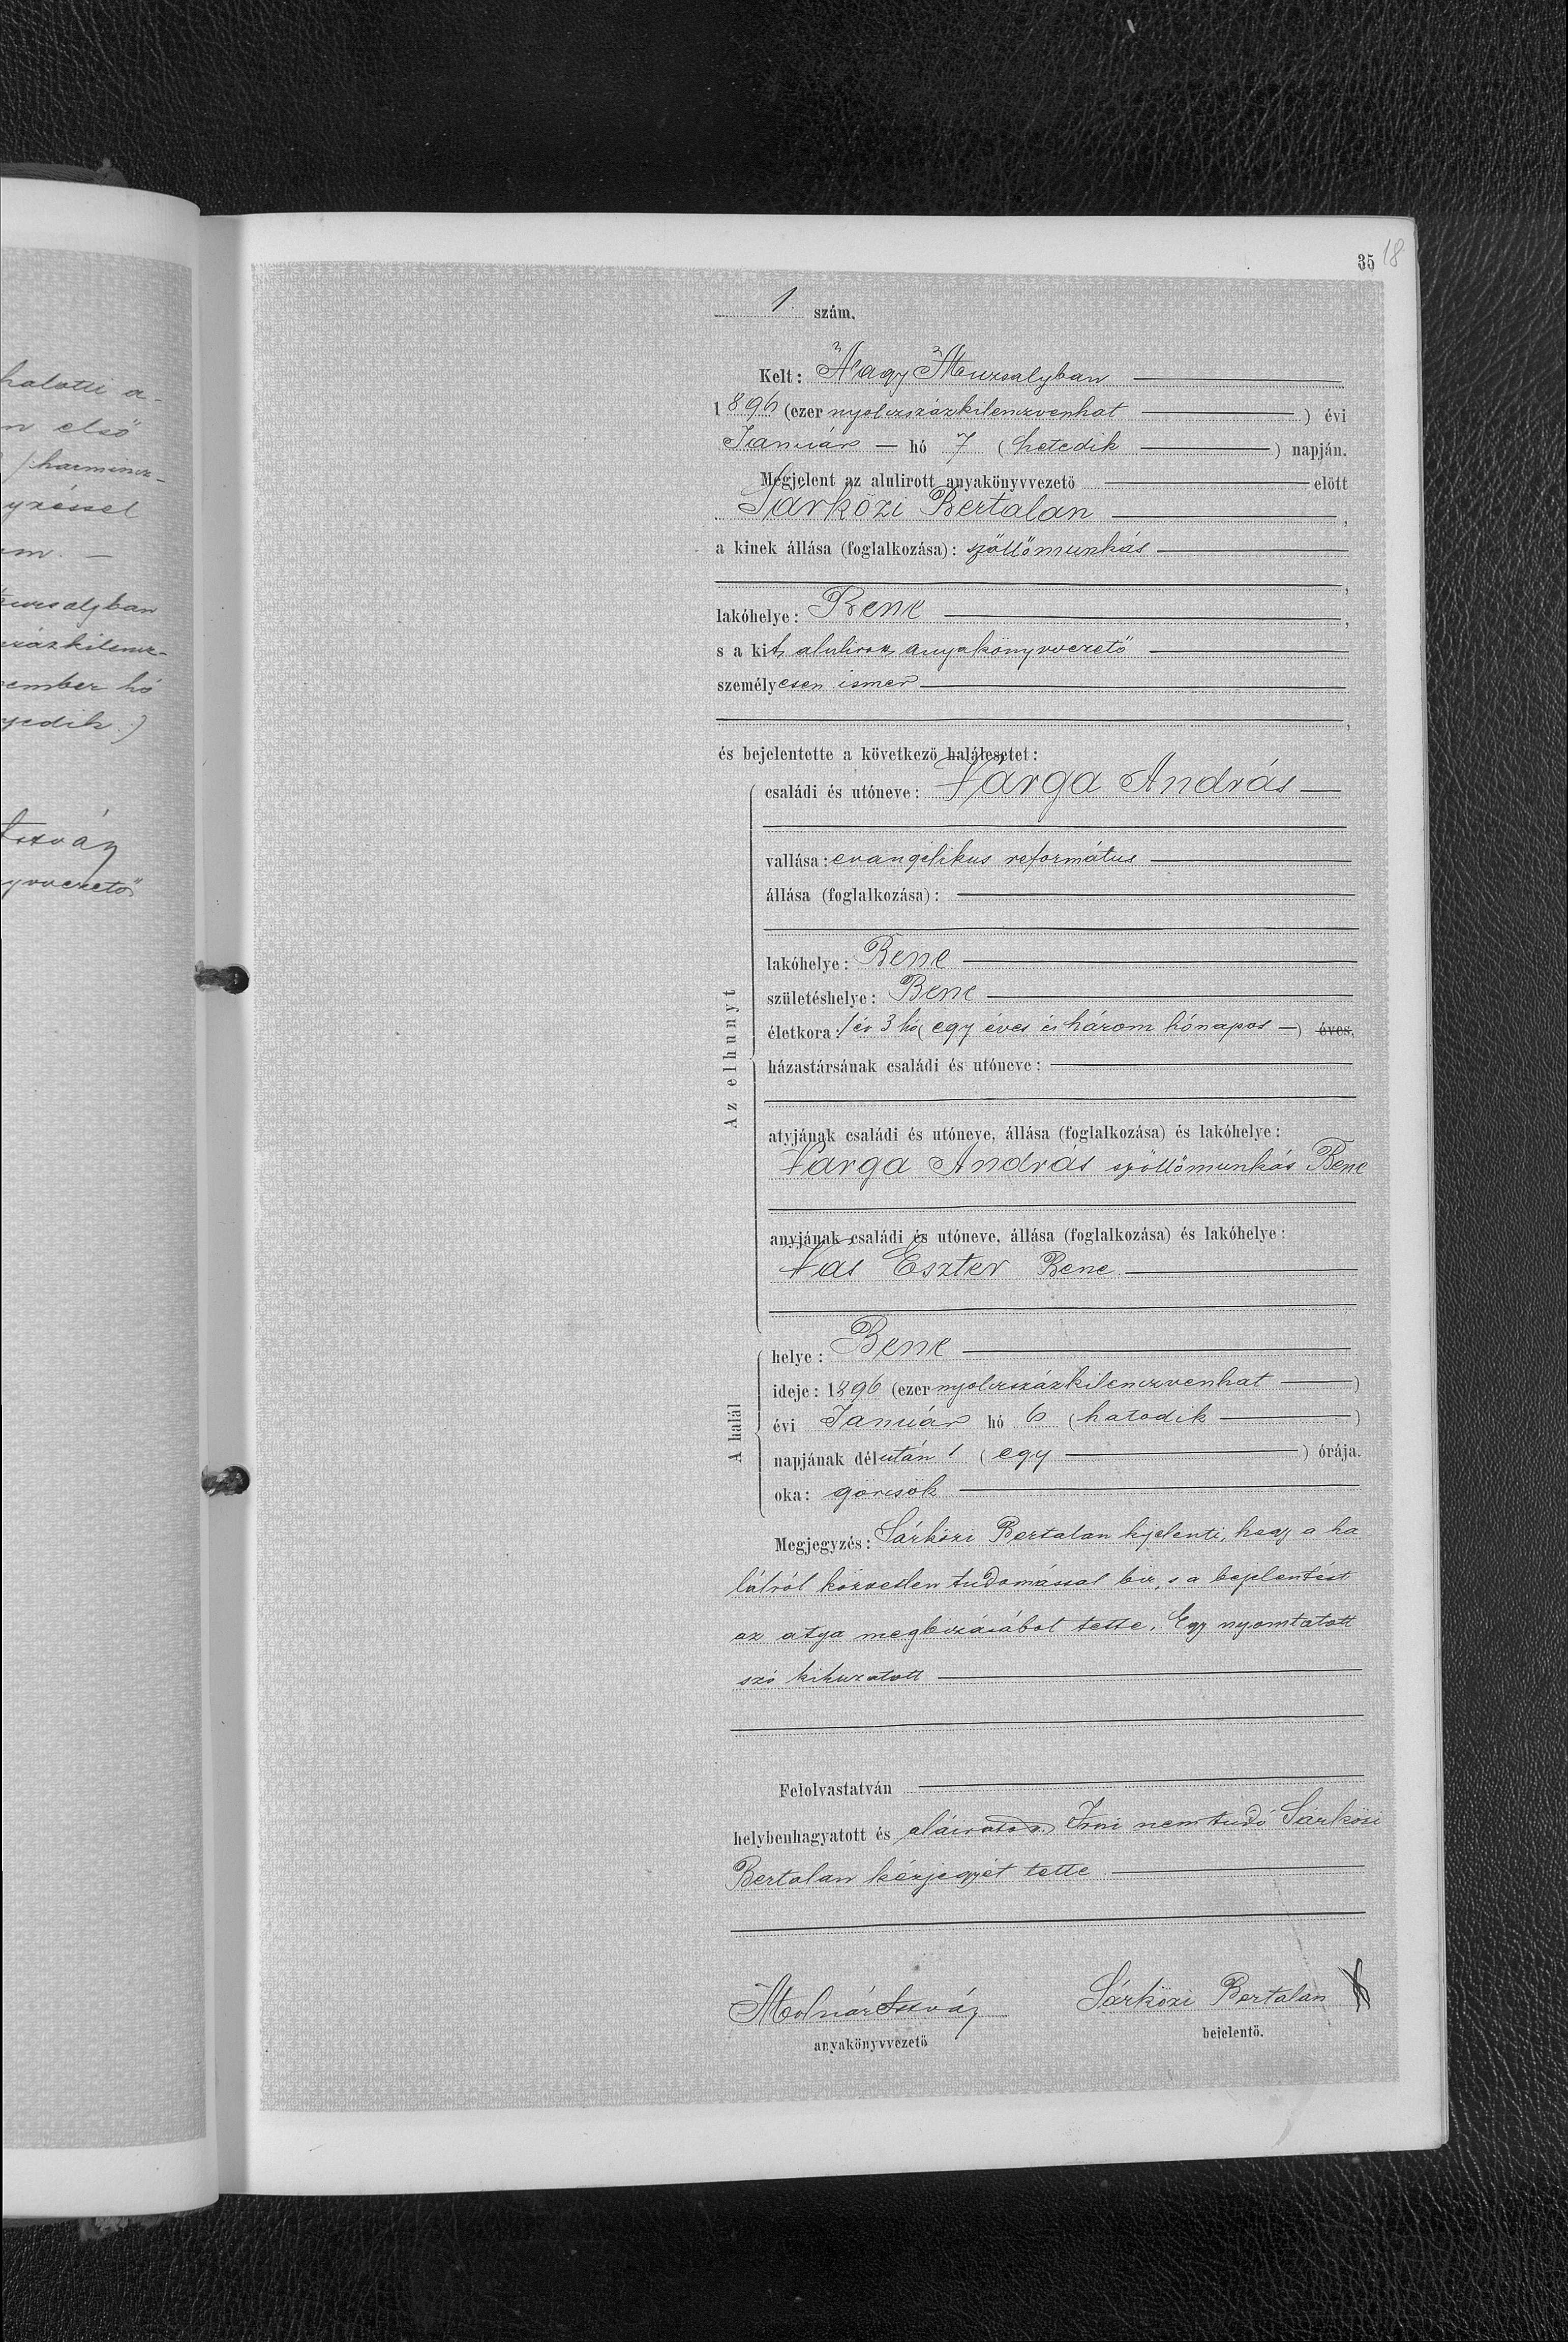 halotti a-
n első
harmincz-
gyzéssel
um. —
urzsalyban
százkilencz-
cember hó
gyedik)
István
yvvezető
35 18
1. szám.
Kelt: Nagy Muzsalyban
1896 (ezer nyolczszázkilenczvenhat ) évi
Január — hó 7 (hetedik ) napján.
Megjelent az alulirott anyakönyvvezető előtt
Sárközi Bertalan ,
a kinek állása (foglalkozása): szöllőmunkás
,
lakóhelye: Bene ,
s a kit, alulirott anyakönyvvezető
személyesen ismer
,
és bejelentette a következő halálesetet:
Az elhunyt
családi és utóneve: Varga András —
vallása: evangélikus református
állása (foglalkozása):
lakóhelye: Bene
születéshelye: Bene
életkora: 1 év 3 hó (egy éves és három hónapos —) éves,
házastársának családi és utóneve:
atyjának családi és utóneve, állása (foglalkozása) és lakóhelye:
Varga András szöllőmunkás Bene
anyjának családi és utóneve, állása (foglalkozása) és lakóhelye:
Vas Eszter Bene
A halál
helye: Bene
ideje: 1896 (ezer nyolczszázkilenczvenhat )
évi Január hó 6 (hatodik )
napjának délután 1 (egy ) órája.
oka: görcsök
Megjegyzés: Sárközi Bertalan kijelenti, hogy a ha
lálról közvetlen tudomással bir, s a bejelentést
az atya megbizásából tette. Egy nyomtatott
szó kihuzatott
Felolvastatván
helybenhagyatott és aláiratott. Irni nem tudó Sárközi
Bertalan kézjegyét tette
Molnár István Sárközi Bertalan X
anyakönyvvezető bejelentő.